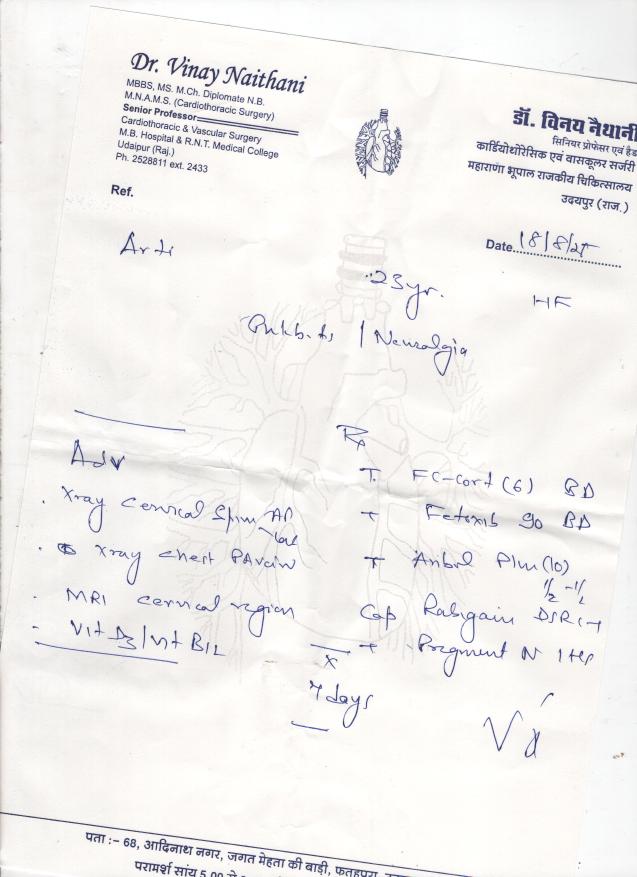 Dr. Vinay Naithani
MBBS, MS. M.Ch. Diplomate N.B.
M.N.A.M.S. (Cardiothoracic Surgery)
Senior Professor
Cardiothoracic & Vascular Surgery
M.B. Hospital & R.N.T. Medical College
Udaipur (Raj.)
Ph. 2528811 ext. 2433
डॉ. विनय नैथानी
सिनियर प्रोफेसर एवं हैड
कार्डियोथोरेसिक एवं वासकूलर सर्जरी
महाराणा भूपाल राजकीय चिकित्सालय
उदयपुर (राज.)
Ref.
Date 18/8/25
Arti
23 yr.
/ Neuralgia
Adv
Xray cervical Spine AP
Lat
Xray chest PA view
MRI cervical region
Vit D3 / Vit B12
Rx
T. FC-Cort (6) BD
T Fetoxib 90 BD
T Plus (10)
1/2 - 1/2
Cap Rabigain DSR
T N
x
7 days
पता :- 68, आदिनाथ नगर, जगत मेहता की बाड़ी, फतहपुरा,
परामर्श सांय 5.00 से